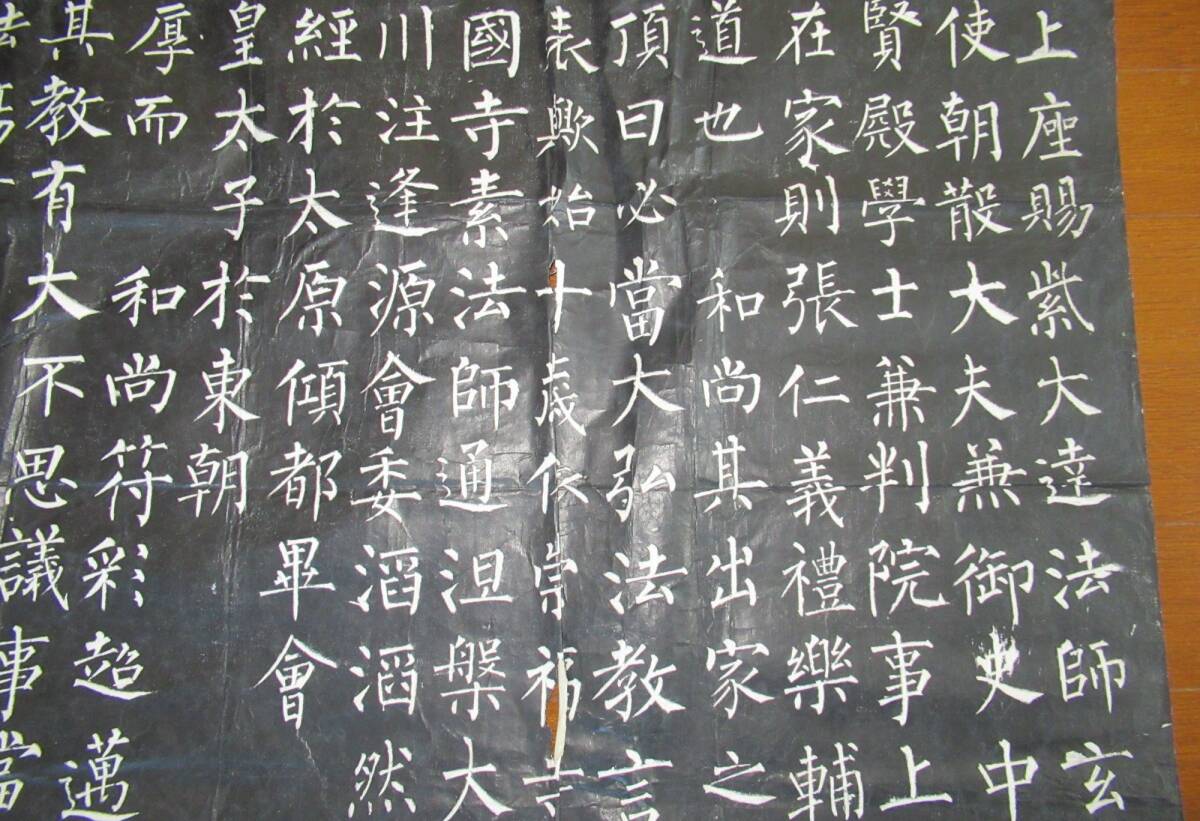 上座賜紫大達法師玄
使朝散大夫兼御史中
賢殿學士兼判院事上
在家則張仁義禮樂輔
道也和尚其出家之
頂曰必當大弘法教言
表歟始十歲依崇福寺
國寺素法師通涅槃大
川注逢源會委滔滔然
經於太原傾都畢會
皇太子於東朝
厚而和尚符彩超邁
其教有大不思議事當
法